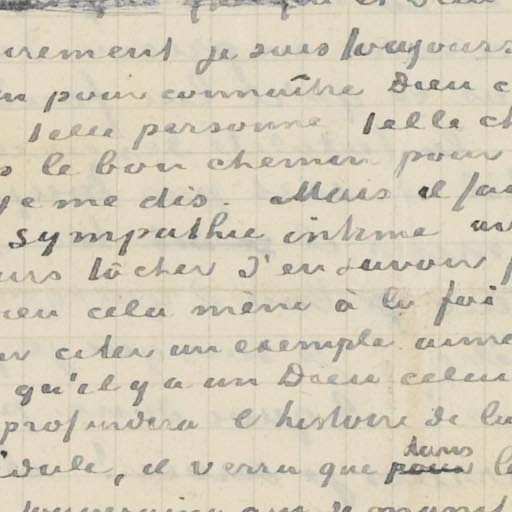 urement je suis toujours
pour connaître Dieu
telle personne telle ch
s le bon chemin pour
je me dis. Mais il fau
sympathie intime av
urs tâcher d'en savoir
ieu cela mène à la foi
r citer un exemple aime
qu'il y a un Dieu celui
profondira l'histoire de la
idule, il verra que pour dans le